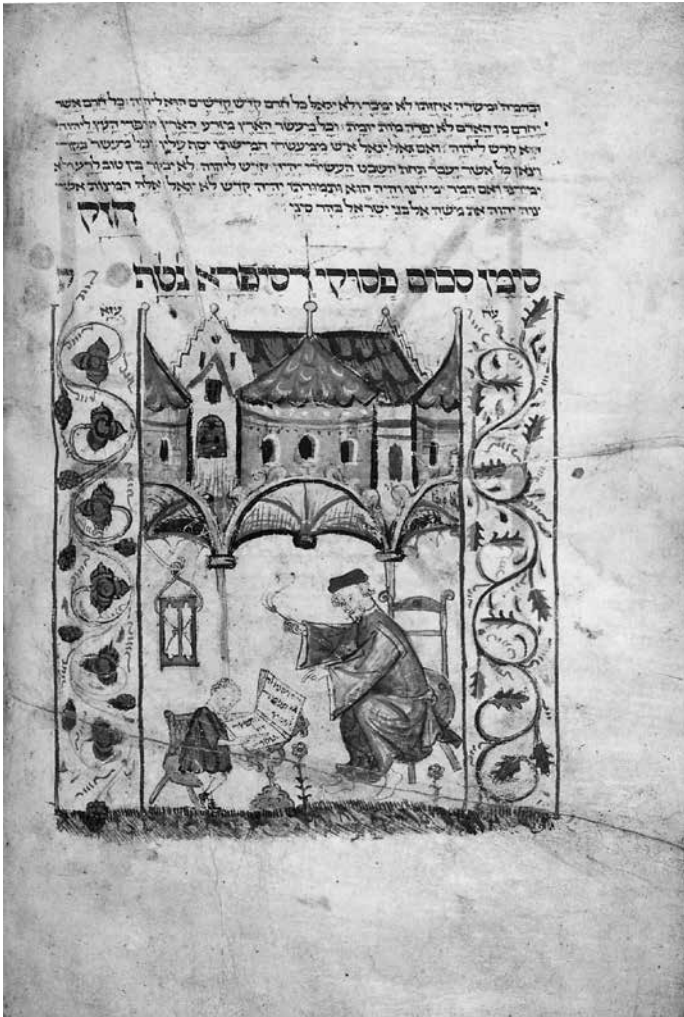 ובהמה ומשדה אחזתו לא ימכר ולא יגאל כל חרם קדש קדשים הוא ליהוה כל חרם אשר
יחרם מן האדם לא יפדה מות יומת וכל מעשר הארץ מזרע הארץ מפרי העץ ליהוה
הוא קדש ליהוה ואם גאל יגאל איש ממעשרו חמישתו יסף עליו וכל מעשר בקר
וצאן כל אשר יעבר תחת השבט העשירי יהיה קדש ליהוה לא יבקר בין טוב לרע ולא
ימירנו ואם המר ימירנו והיה הוא ותמורתו יהיה קדש לא יגאל אלה המצות אשר
צוה יהוה את משה אל בני ישראל בהר סיני
חזק
סימן סכום פסוקי דסיפרא נטף